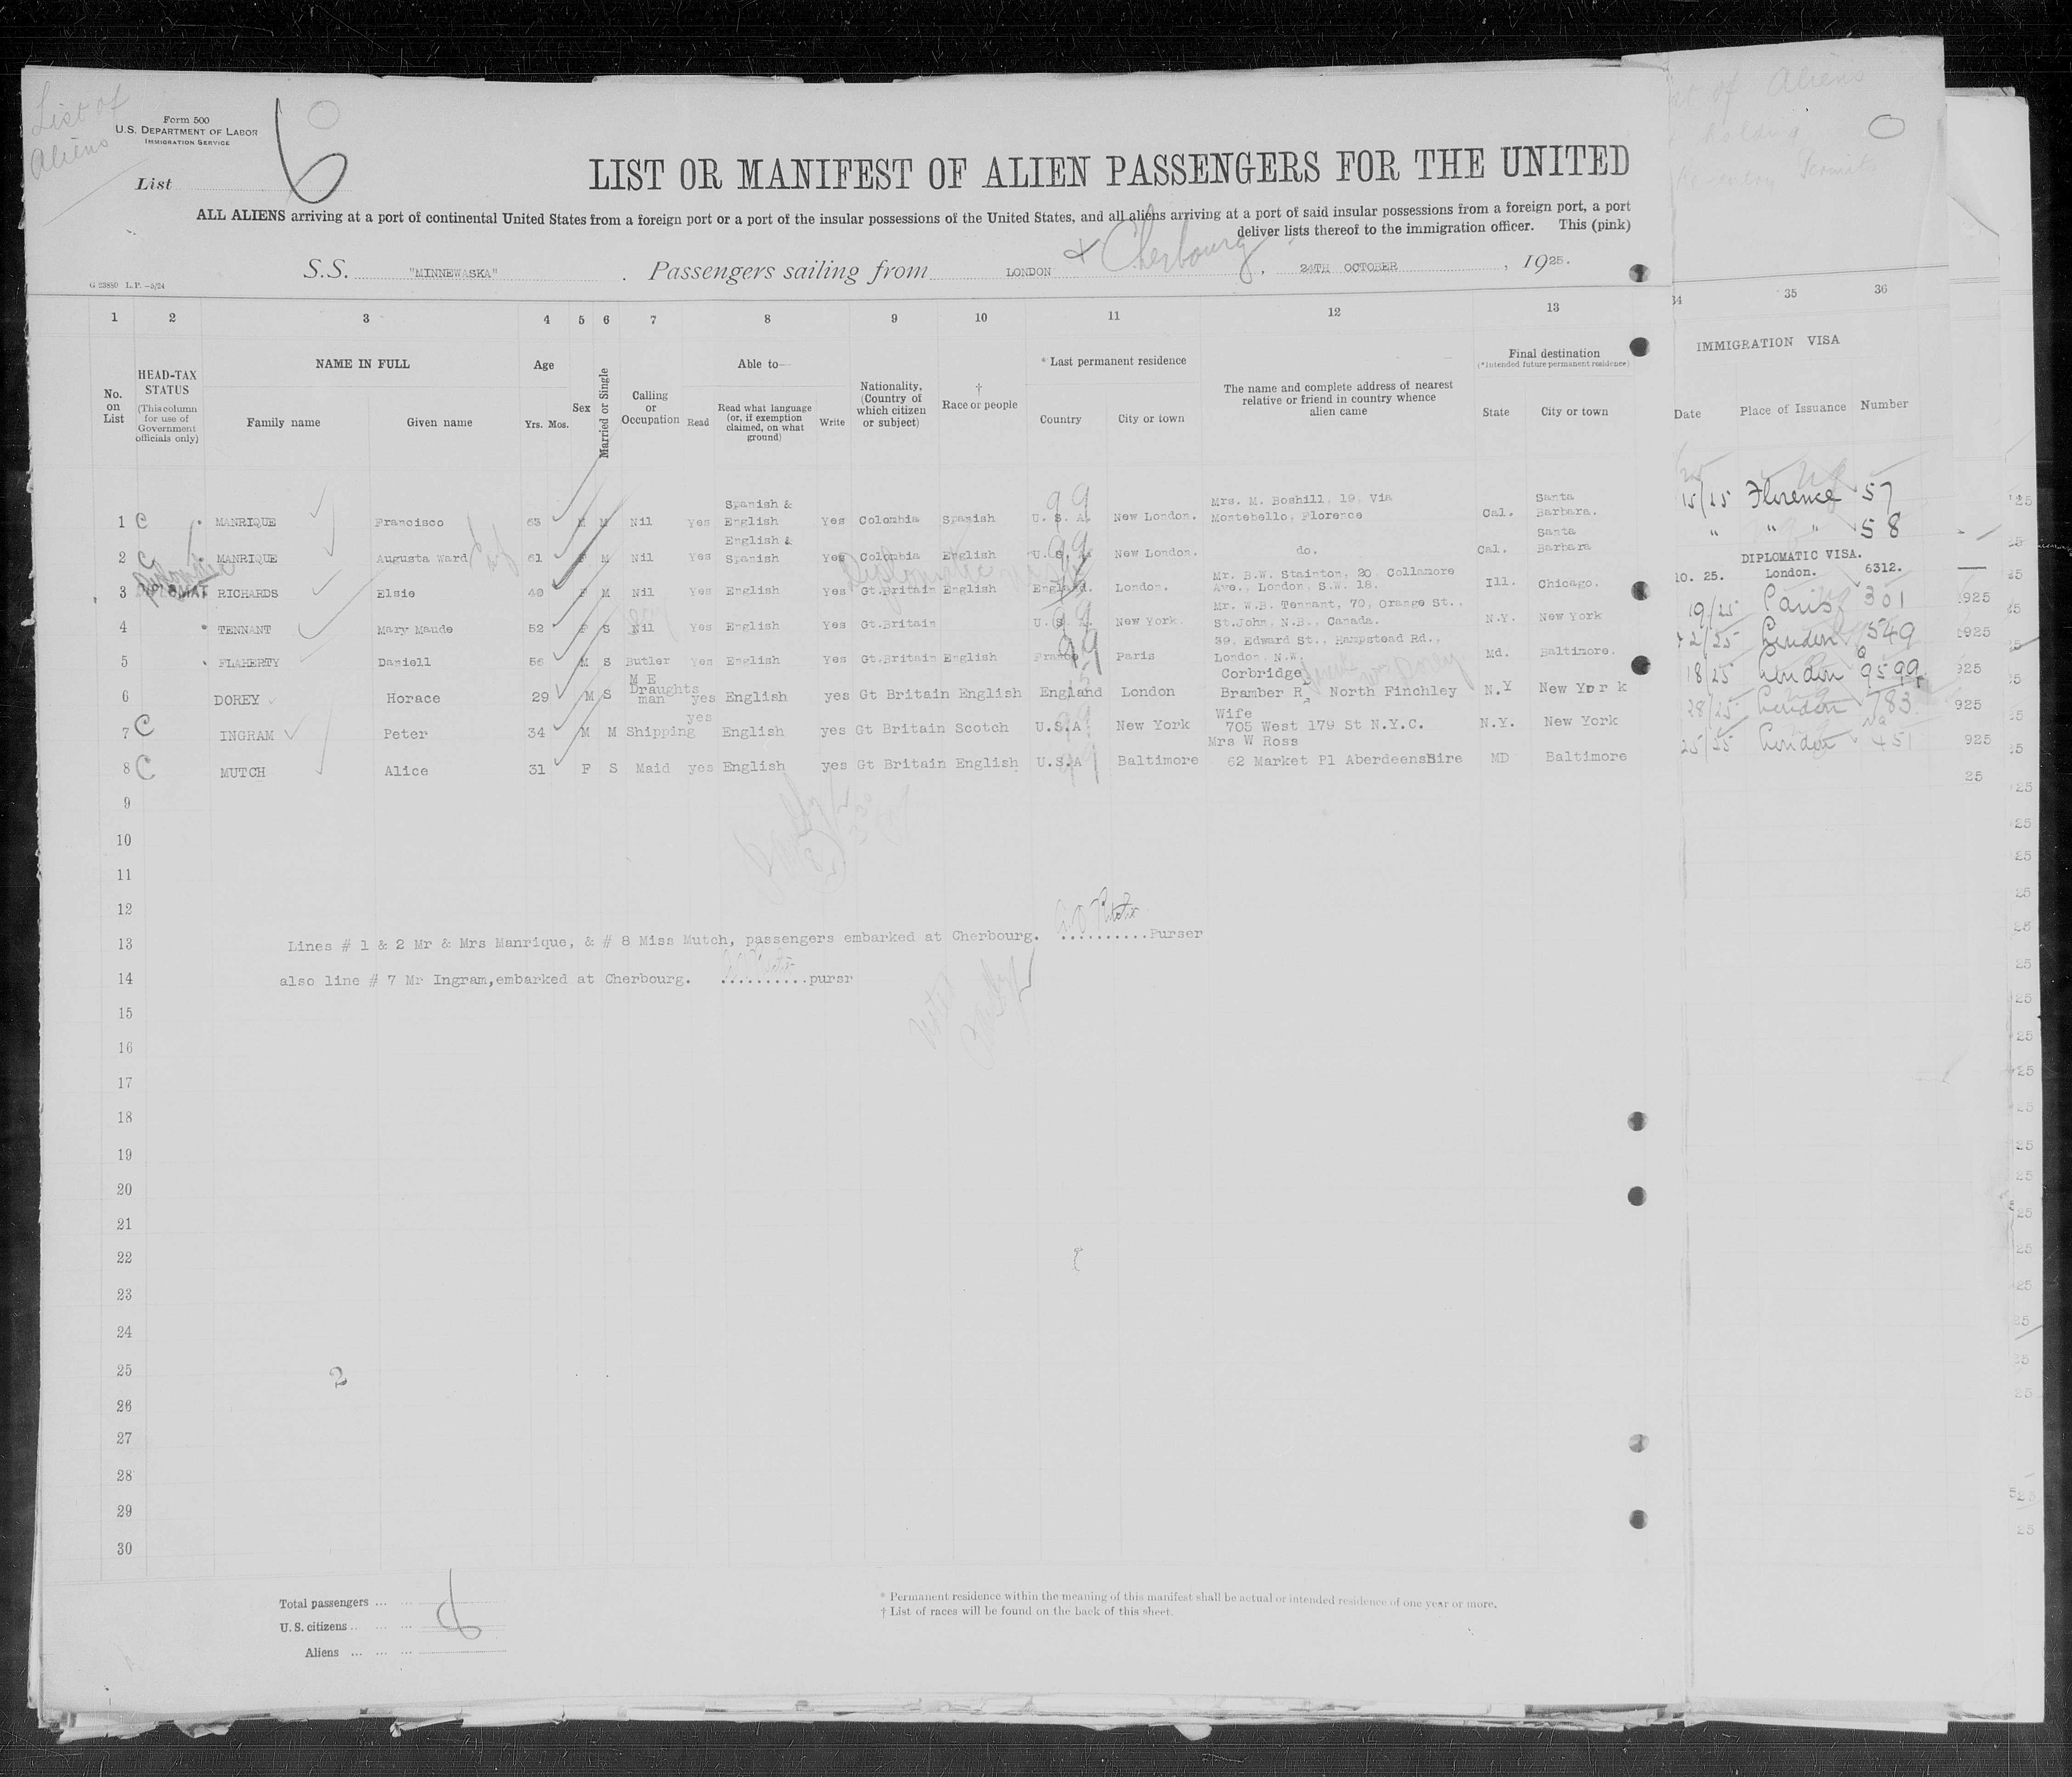 List of
Aliens
Form 500
U.S. DEPARTMENT OF LABOR
IMMIGRATION SERVICE
List 6
LIST OR MANIFEST OF ALIEN PASSENGERS FOR THE UNITED
ALL ALIENS arriving at a port of continental United States from a foreign port or a port of the insular possessions of the United States, and all aliens arriving at a port of said insular possessions from a foreign port, a port
deliver lists thereof to the immigration officer. This (pink)
S.S. "MINNEWASKA". Passengers sailing from LONDON + Cherbourg, 24TH OCTOBER, 1925.
G 23880 L.P. —5/24
1 2 3 4 5 6 7 8 9 10 11 12 13
No. on List
HEAD-TAX STATUS (This column for use of Government officials only)
NAME IN FULL
Family name Given name
Age
Yrs. Mos.
Sex
Married or Single
Calling or Occupation
Able to—
Read
Read what language (or, if exemption claimed, on what ground)
Write
Nationality, (Country of which citizen or subject)
† Race or people
* Last permanent residence
Country City or town
The name and complete address of nearest relative or friend in country whence alien came
Final destination
(*Intended future permanent residence)
State City or town
1 C MANRIQUE Francisco 63 M M Nil Yes Spanish & English Yes Colombia Spanish U.S.A. New London. Mrs. M. Boshill, 19, Via Montebello, Florence Cal. Santa Barbara.
2 C MANRIQUE Augusta Ward 61 F M Nil Yes English & Spanish Yes Colombia English U.S.A. New London. do. Cal. Santa Barbara
3 DIPLOMAT RICHARDS Elsie 40 F M Nil Yes English Yes Gt.Britain English England. London. Mr. B.W. Stainton, 20 Collamore Ave., London, S.W. 18. Ill. Chicago.
4 TENNANT Mary Maude 52 F S Nil Yes English Yes Gt.Britain U.S.A. New York. Mr. W.B. Tennant, 70, Orange St., St.John, N.B., Canada. N.Y. New York
5 FLAHERTY Daniell 56 M S Butler Yes English Yes Gt.Britain English France Paris 39, Edward St., Hampstead Rd., London, N.W. Md. Baltimore.
6 DOREY Horace 29 M S M E Draughts man yes English yes Gt Britain English England London Corbridge, Bramber R, North Finchley N.Y New York
7 C INGRAM Peter 34 M M Shipping yes English yes Gt Britain Scotch U.S.A New York Wife 705 West 179 St N.Y.C. N.Y. New York
8 C MUTCH Alice 31 F S Maid yes English yes Gt Britain English U.S.A Baltimore Mrs W Ross 62 Market Pl AberdeensHire MD Baltimore
9
10
11
12
13 Lines # 1 & 2 Mr & Mrs Manrique, & # 8 Miss Mutch, passengers embarked at Cherbourg. ..........Purser
14 also line # 7 Mr Ingram,embarked at Cherbourg. ..........pursr
15
16
17
18
19
20
21
22
23
24
25 2
26
27
28
29
30
Total passengers ...
U.S. citizens ...
Aliens ... ... ...
* Permanent residence within the meaning of this manifest shall be actual or intended residence of one year or more.
† List of races will be found on the back of this sheet.
of Aliens
holding
34 35 36
IMMIGRATION VISA
Date Place of Issuance Number
15/25 Florence 57
" " " 58
DIPLOMATIC VISA.
10. 25. London. 6312.
19/25 Paris 301
2/25 London 549
18/25 London 9599
28/25 London 783
25/25 London 451